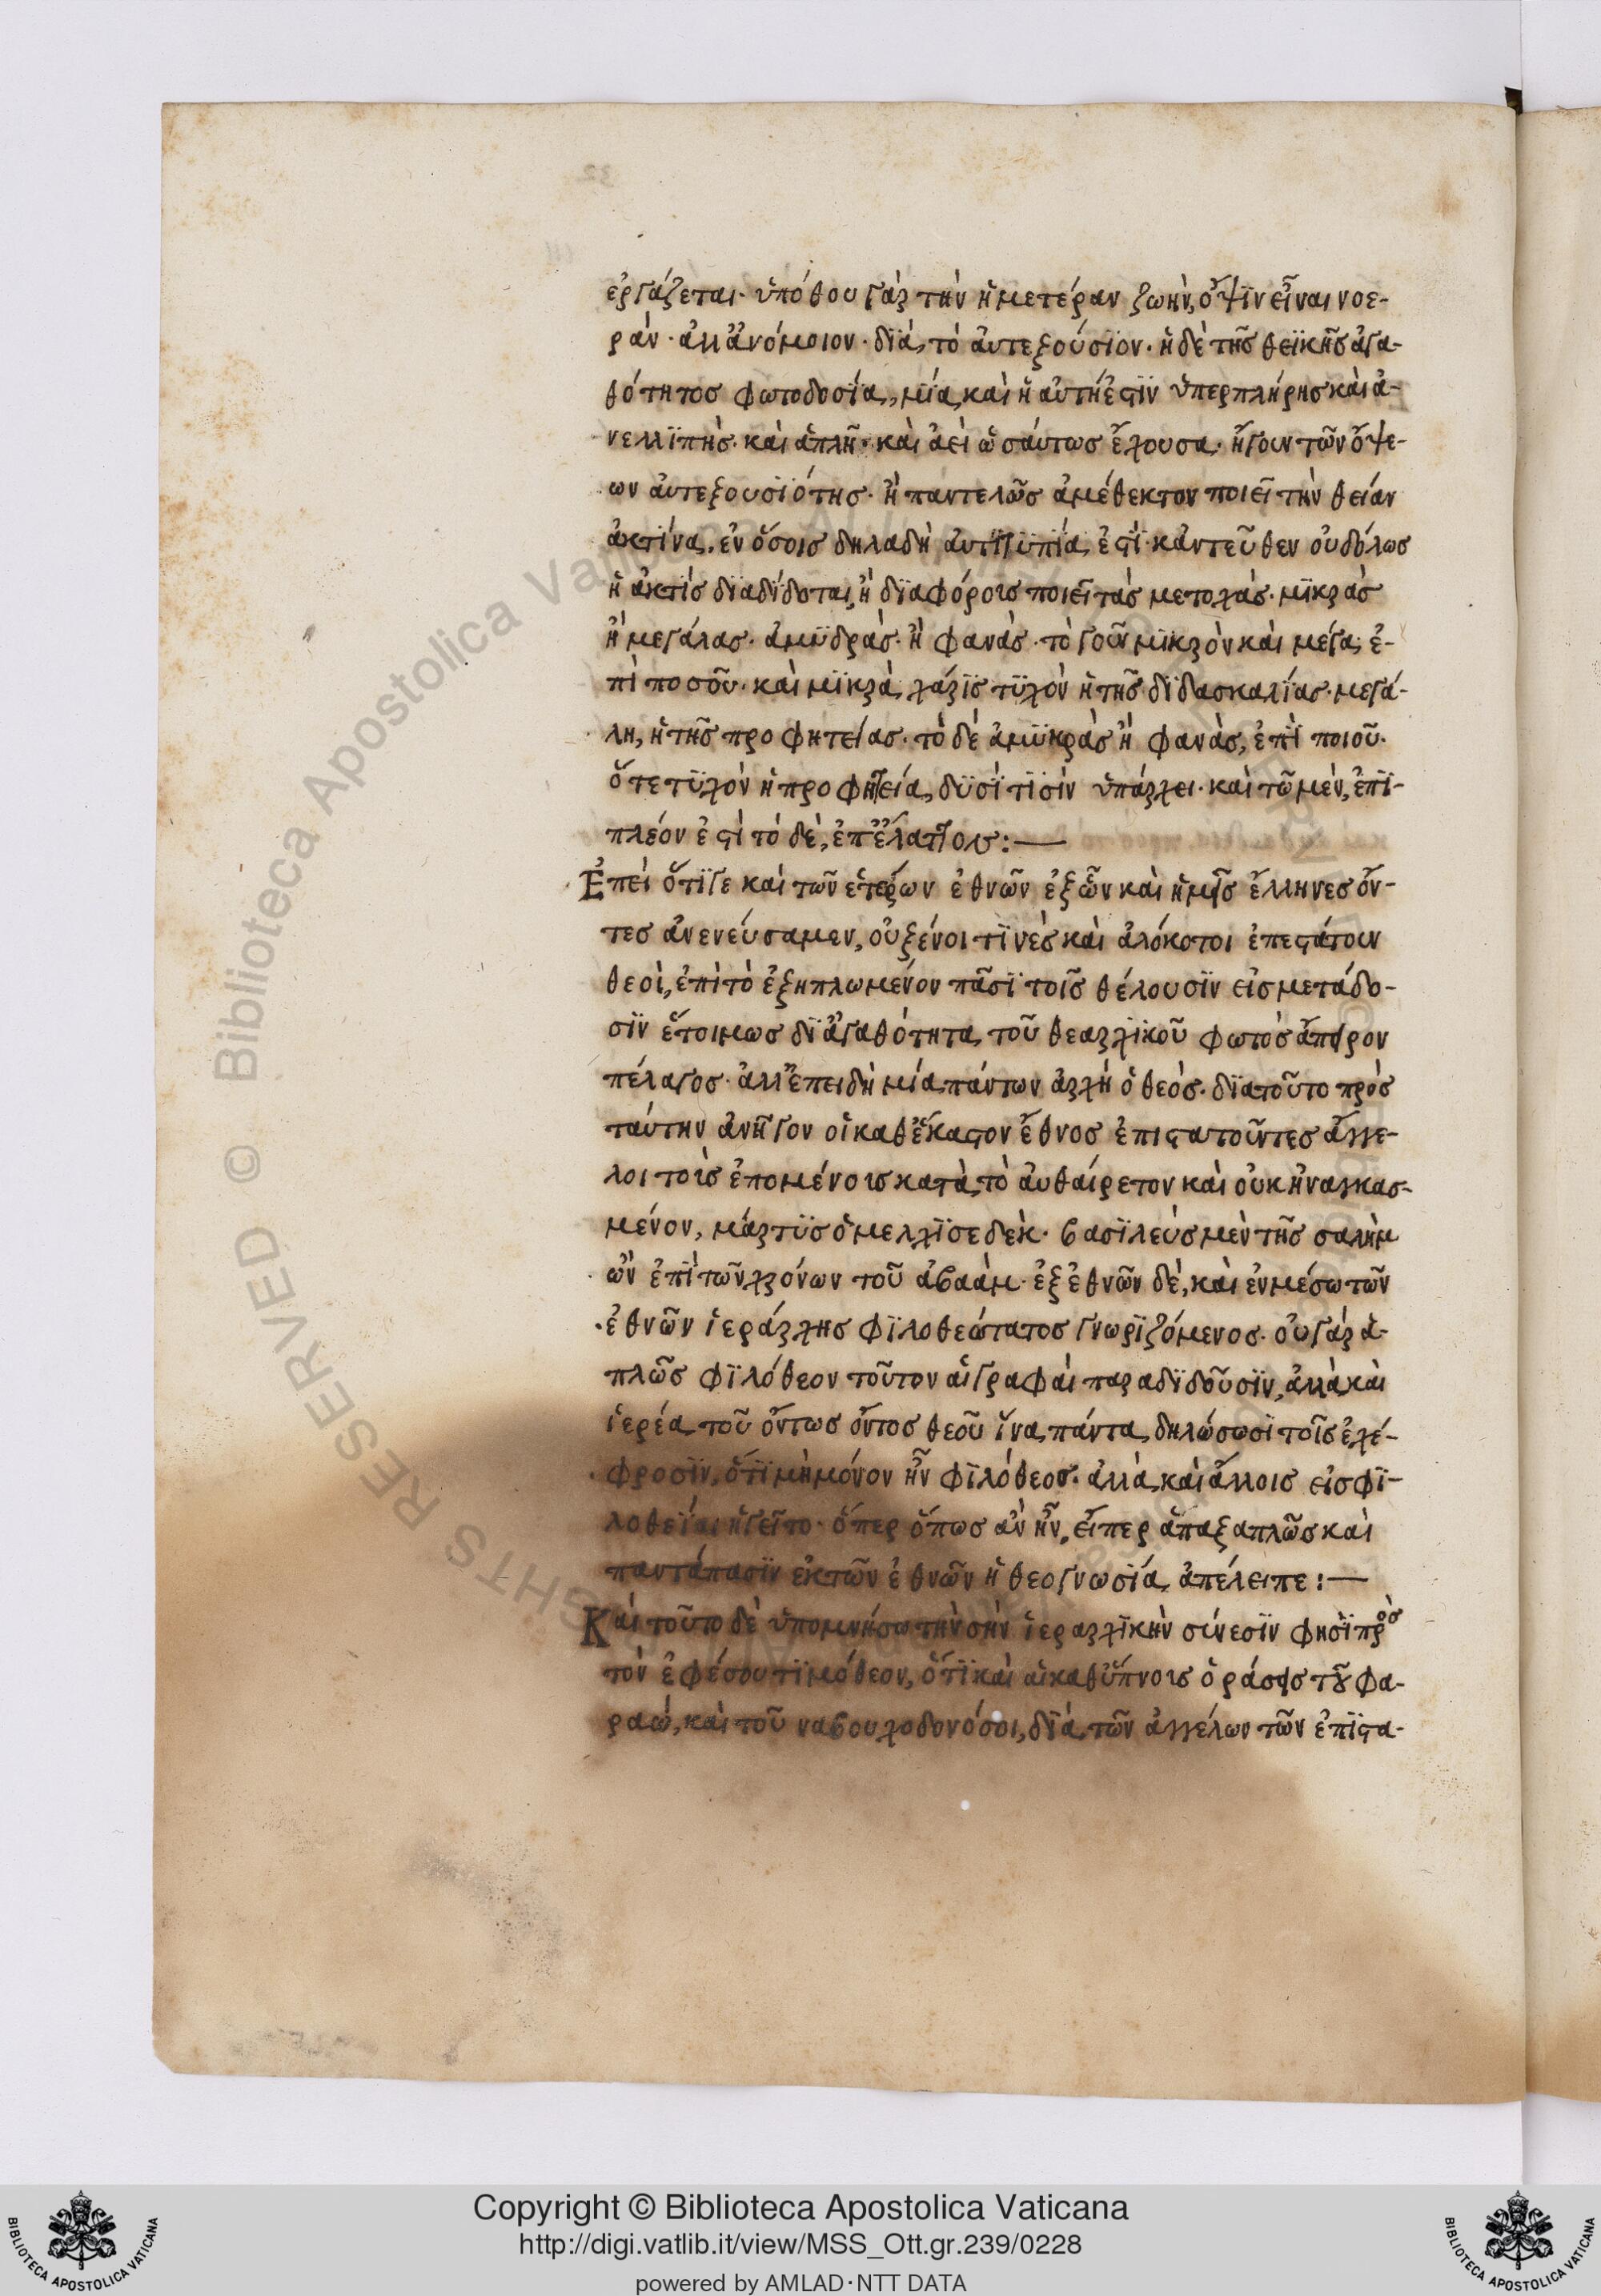 ἐργάζεται· ὑπόθου γὰρ τὴν ἡμετέραν ζωὴν, ὄψϊν εἶναι νοε-
ρὰν· ἀλλἀνόμοιον· δϊὰ τὸ ἀυτεξούσϊον· ἡ δὲ τῆς θεϊκῆς ἀγα-
θότητος φωτοδοσΐα, μΐα καὶ ἡ αὐτή ἐστϊν ὑπερπλήρης καὶ ἀ-
νελλϊπὴς· καὶ ἁπλῆ· καὶ ἀεὶ ὡσάυτως ἔχουσα· ἤγουν τῶν ὄψε-
ων ἀυτεξουσϊότης· ἢ παντελῶς ἀμέθεκτον ποιεῖ τὴν θείαν
ἀκτῖνα. ἐν ὅσοις δηλαδὴ ἀντϊτυπΐα ἐστὶ· κἀντεῦθεν οὐδόλως
ἡ ἀκτὶς δϊαδΐδοται, ἢ δϊαφόροις ποιεῖ τὰς μετοχὰς· μϊκρὰς
ἢ μεγάλας· ἀμϋδρὰς· ἢ φανὰς· τὸ γοῦν μϊκρὸν καὶ μέγα, ἐ-
πὶ ποσοῦ· καὶ μϊκρὰ χάρϊς τϋχὸν ἡ τῆς δϊδασκαλΐας· μεγά-
λη, ἡ τῆς προφητείας· τὸ δὲ ἀμϋκρὰς ἢ φανὰς, ἐπὶ ποιοῦ·
ὅτε τϋχὸν ἡ προφητεία, δϋσΐ τϊσὶν ὑπάρχει· καὶ τῶ μὲν, ἐπϊ-
πλέον ἐστὶ τὸ δὲ, ἐπἔλαττον :—
Ἐπεὶ ὅτϊγε καὶ τῶν ἑτέρων ἐθνῶν ἐξὧν καὶ ἡμεῖς ἕλληνες ὄν-
τες ἀνενεύσαμεν, οὐξένοι τϊνὲς καὶ ἀλόκοτοι ἐπεστάτουν
θεοὶ, ἐπὶ τὸ ἐξηπλωμένον πᾶσϊ τοῖς θέλουσϊν εἰς μετάδο-
σϊν ἑτοίμως δϊἀγαθότητα, τοῦ θεαρχϊκοῦ φωτὸς ἄπειρον
πέλαγος· ἀλλἐπειδὴ μία πάντων ἀρχὴ ὁ θεὸς· δϊατοῦτο πρὸς
ταύτην ἀνῆγον οἱ καθἕκαστον ἔθνος ἐπιστατοῦντες ἄγγε-
λοι τοὶς ἑπομένοις κατὰ τὸ ἀυθαίρετον καὶ οὐκ ἠναγκασ-
μένον, μάρτϋς ὁ μελχϊσεδεκ· βασϊλεὺς μὲν τῆς σαλὴμ
ὢν ἐπὶ τῶν χρόνων τοῦ ἀβαὰμ· ἐξ ἐθνῶν δὲ, καὶ ἐν μέσω τῶν
ἐθνῶν ἱεράρχης φϊλοθεώτατος γνωρϊζόμενος· οὐ γὰρ ἁ-
πλῶς φϊλόθεον τοῦτον αἱ γραφαὶ παραδϊδοῦσϊν, ἀλλὰ καὶ
ἱερέα τοῦ ὄντως ὄντος θεοῦ ἵνα πάντα δηλώσωσϊ τοῖς ἐχέ-
φροσϊν, ὅτϊ μὴ μόνον ἦν φϊλόθεος· ἀλλὰ καὶ ἄλλοις εἰς φϊ-
λοθεΐαν ἡγεῖτο· ὅπερ ὅπως ἂν ἦν, εἴπερ ἅπαξ απλῶς καὶ
παντάπασϊν ἐκ τῶν ἐθνῶν ἡ θεογνωσΐα ἀπέλειπε :—
Καὶ τοῦτο δὲ ὑπομνήσω τὴν σὴν ἱεραρχϊκὴν σύνεσϊν φησϊ πρὸς
τὸν ἐφέσου τϊμόθεον, ὅτϊ καὶ αἱ καθὕπνοις ὁράσεις τοῦ φα-
ραώ, καὶ τοῦ ναβουχοδονόσοι, δϊὰ τῶν ἀγγέλων τῶν ἐπϊστα-
Copyright © Biblioteca Apostolica Vaticana
http://digi.vatlib.it/view/MSS_Ott.gr.239/0228
powered by AMLAD·NTT DATA
BIBLIOTECA APOSTOLICA VATICANA
BIBLIOTECA APOSTOLICA VATICANA